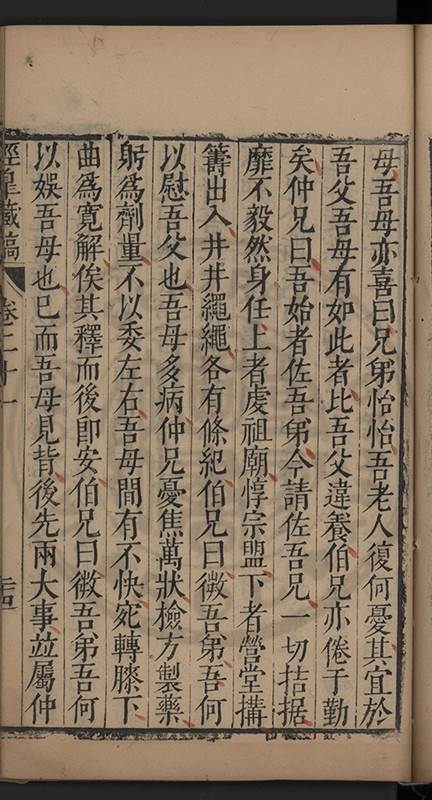 母吾母亦喜曰兄弟怡怡吾老人復何憂其宜於
吾父吾母有如此者比吾父違養伯兄亦倦于勤
矣仲兄曰吾始者佐吾弟今請佐吾兄一切拮据
靡不毅然身任上者虔祖廟惇宗盟下者營堂搆
籌出入井井繩繩各有條紀伯兄曰微吾弟吾何
以慰吾父也吾母多病仲兄憂焦萬狀檢方製藥
躬爲劑量不以委左右吾母間有不快宛轉膝下
曲爲寬解俟其釋而後即安伯兄曰微吾弟吾何
以娛吾母也已而吾母見背後先兩大事並屬仲
藏稿 卷二十一